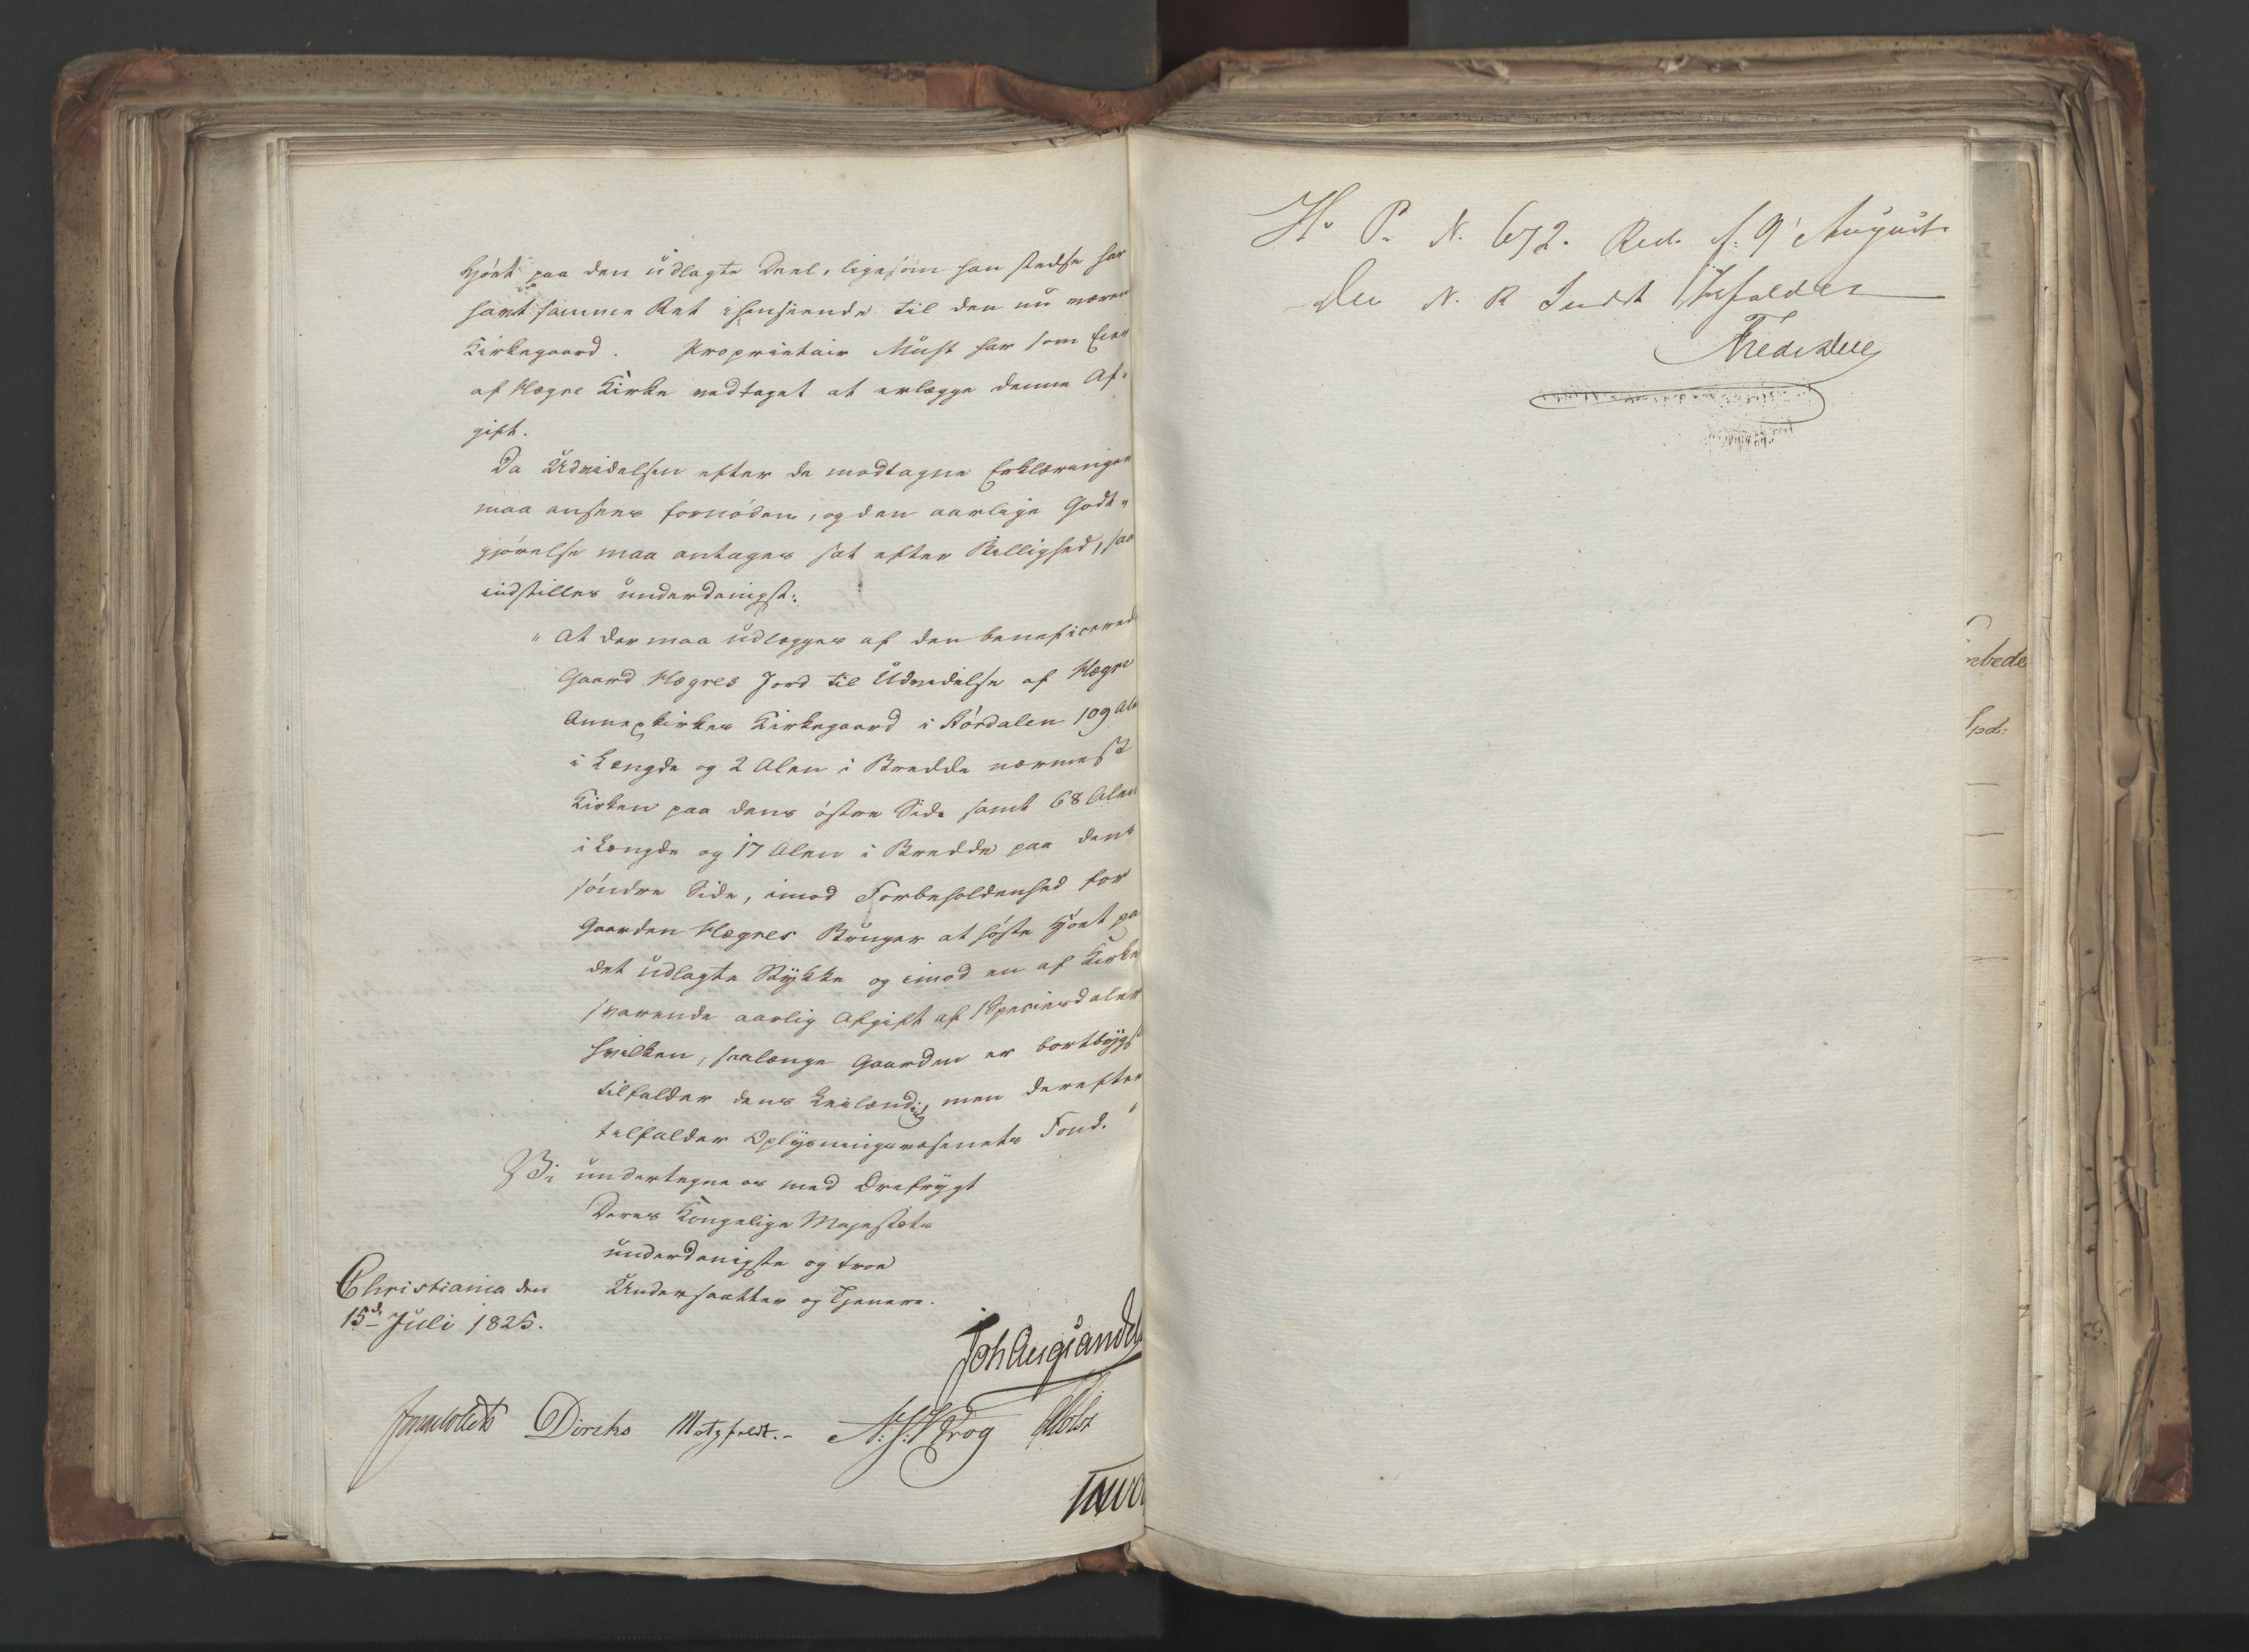 Höet paa den udlagte Deel, ligesom han stedse har
havt samme Ret ihenseende til den nu værende
Kirkegaard. Proprietair Must har som Eier
af Hegre Kirke vedtaget at erlægge denne Af-
gift.
Da Udvidelsen efter de modtagne Erklæringer
maa ansees fornöden, og den aarlige Godt-
gjörelse maa antages sat efter Billighed, saa
indstilles underdanigst:
" At der maa udlægges af den beneficerede
Gaard Hægres Jord til Udvidelse af Hægre
Annexkirkes Kirkegaard i Stördalen 109 Alen
i Længde og 2 Alen i Bredde nærmest
Kirken paa dens östre Side samt 68 Alen
i Længde og 17 Alen i Bredde paa dens
söndre Side, imod Forbeholdenhed for
Gaarden Hægres Bruger at höste Höet paa
det udlagte Stykke og imod en af Kirken
svarende aarlig Afgift af 1 Speciesdaler
hvilken, saalænge Gaarden er bortbygs
tilfalder dens Leilænding, men derefter
tilfalder Oplysningsvæsenets Fond. "
Vi undertegne os med Ærefrygt
Deres Kongelige Majestæts
underdanigste og troe
Christiania den Undersaatter og Tjenere.
15de Juli 1825.
Joh Aug Sandels
Diriks Motzfeldt.- N: J: Krog
H. P. N. 672. Red. f. 9 August
Den N. R Indst bifaldes